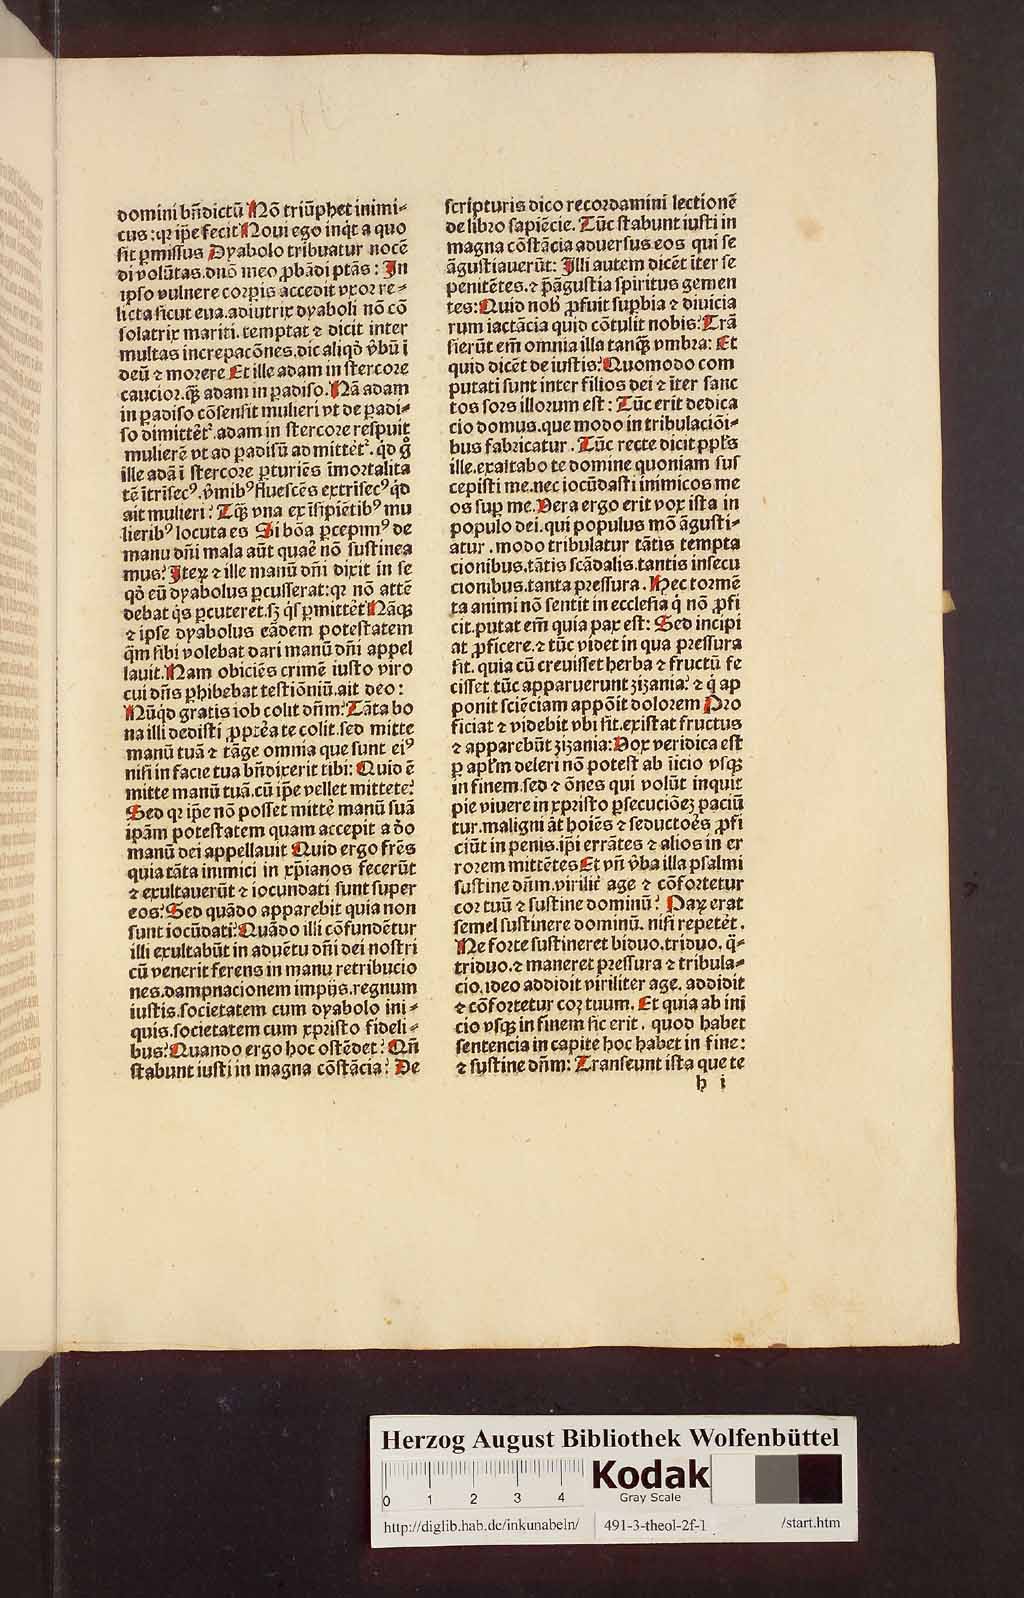 domini bñdictũ Nõ triũphet inimi-
cus: qꝛ ip̃e fecit Noui ego inq̇t a quo
sit ꝑmissus Dyabolo tribuatur nocẽ
di volũtas. duõ meo ꝓbãdi ptãs: In
ipso vulnere coꝛꝑis accedit vxoꝛ re-
licta sicut eua. adiutrix dyaboli nõ cõ
solatrix mariti. temptat ⁊ dicit inter
multas increpacões. dic aliqd̾ v̾bũ ĩ
deũ ⁊ moꝛere Et ille adam in stercoꝛe
caucioꝛ. qᷓ̃ adam in ꝑadiso. Nã adam
in ꝑadiso cõsensit mulieri vt de ꝑadi-
so dimittẽt᷑. adam in stercoꝛe respuit
mulierẽ vt ad ꝑadisũ admittẽt᷑. qd̾ g̊
ille adã ĩ stercoꝛe ꝑturiẽs ĩmoꝛtalita
tẽ ĩtrĩsecꝰ. v̾mibꝰ fluescẽs extrĩsecꝰ qd̾
ait mulieri? Tqᷓ̃ vna ex ĩsipiẽtibꝰ mu
lieribꝰ locuta es Si bõa ꝑcepimꝰ de
manu dñi mala aũt quaẽ nõ sustinea
mus? Itex ⁊ ille manũ dñi dixit in se
qd̾ eũ dyabolus ꝑcusserat: qꝛ nõ attẽ
debat q̇s ꝑcuteret. sꝫ q̇s ꝑmittẽt Nãqꝫ
⁊ ipse dyabolus eãdem potestatem
q̃m sibi volebat dari manũ dñi appel
lauit. Nam obiciẽs crimẽ iusto viro
cui dñs ꝑhibebat testiõniũ. ait deo:
Nũqd̾ gratis iob colit dñm? Tãta bo
na illi dedisti ꝓpteẽa te colit. sed mitte
manũ tuã ⁊ tãge omnia que sunt eiꝰ
nisi in facie tua bñdixerit tibi: Quid ẽ
mitte manũ tuã. cũ ip̃e vellet mittete?
Sed qꝛ ip̃e nõ posset mittẽ manũ suã
ipãm potestatem quam accepit a dõ
manũ dei appellauit Quid ergo fřes
quia tãta inimici in xp̃ianos fecerũt
⁊ exultauerũt ⁊ iocundati sunt super
eos? Sed quãdo apparebit quia non
sunt iocũdati? Quãdo illi cõfundẽtur
illi exultabũt in aduẽtu dñi dei nostri
cũ venerit ferens in manu retribucio
nes. dampnacionem impijs. regnum
iustis. societatem cum dyabolo ini-
quis. societatem cum xpristo fideli-
bus? Quando ergo hoc ostẽdet? Qñ
stabunt iusti in magna cõstãcia? De
scripturis dico recoꝛdamini lectionẽ
de libro sapiẽcie. Tũc stabunt iusti in
magna cõstãcia aduersus eos qui se
ãgustiauerũt: Illi autem dicẽt ĩter se
penitẽtes. ⁊ p̃ãgustia spiritus gemen
tes: Quid nob̾ ꝓfuit suꝑbia ⁊ diuicia
rum iactãcia quid cõtulit nobis? Trã
sierũt em̃ omnia illa tanqᷓ̃ vmbra: Et
quid dicẽt de iustis? Quomodo com
putati sunt inter filios dei ⁊ ĩter sanc
tos soꝛs illoꝛum est: Tũc erit dedica
cio domus. que modo in tribulaciõi-
bus fabricatur. Tũc recte dicit ppħs
ille. exaltabo te domine quoniam sus
cepisti me. nec iocũdasti inimicos me
os suꝑ me. Vera ergo erit vox ista in
populo dei. qui populus mõ ãgusti-
atur. modo tribulatur tãtis tempta
cionibus. tãtis scãdalis. tantis insecu
cionibus. tanta pressura. Hec toꝛmẽ
ta animi nõ sentit in ecclesia q̇ nõ ꝓfi
cit. putat em̃ quia pax est: Sed incipi
at ꝓficere. ⁊ tũc videt in qua pressura
sit. quia cũ creuisset herba ⁊ fructũ fe
cisset. tũc apparuerunt zizania? ⁊ q̇ ap
ponit sciẽciam appõit doloꝛem Pro
ficiat ⁊ videbit vbi sit. existat fructus
⁊ apparebũt zizania: Vox veridica est
ꝑ apĺm deleri nõ potest ab ĩicio vsqꝫ
in finem. sed ⁊ õnes qui volũt inquit
pie viuere in xpristo ꝑsecuciõeꝫ paciũ
tur. maligni ãt hoiẽs ⁊ seductoẽs ꝓfi
ciũt in penis. ip̃i errãtes ⁊ alios in er
roꝛem mittẽtes Et vñ v̾ba illa psalmi
sustine dñm. virilit̾ age ⁊ cõfoꝛtetur
coꝛ tuũ ⁊ sustine dominũ? Pax erat
semel sustinere dominũ. nisi repetẽt.
Ne foꝛte sustineret biduo. triduo. q̃-
triduo. ⁊ maneret pressura ⁊ tribula-
cio. ideo addidit viriliter age. addidit
⁊ cõfoꝛtetur coꝛ tuum. Et quia ab ini
cio vsqꝫ in finem sic erit. quod habet
sentencia in capite hoc habet in fine:
⁊ sustine dñm: Transeunt ista que te
h i
Herzog August Bibliothek Wolfenbüttel
0 1 2 3 4
Kodak
Gray Scale
http://diglib.hab.de/inkunabeln/ 491-3-theol-2f-1 /start.htm